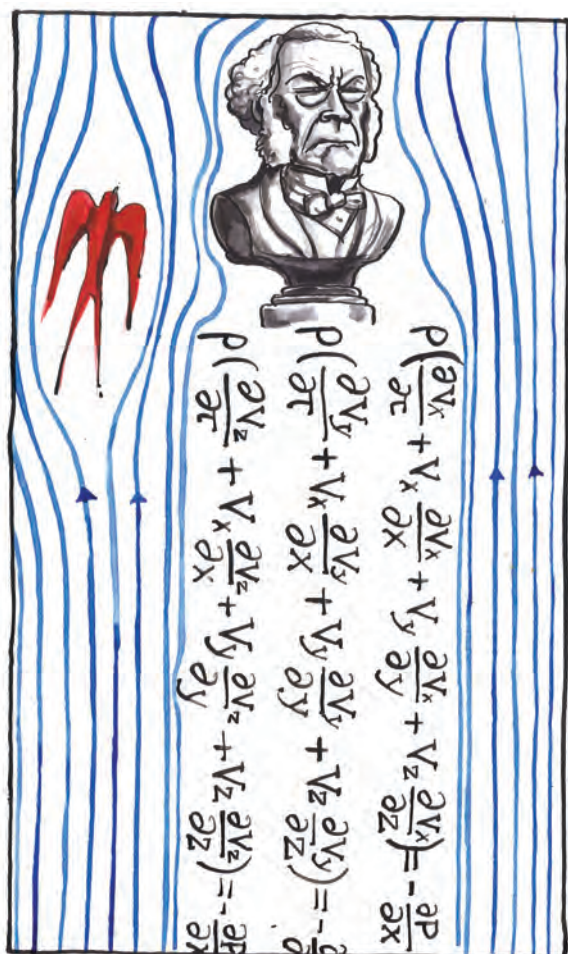 ρ(∂Vx/∂τ + Vx ∂Vx/∂x + Vy ∂Vx/∂y + Vz ∂Vx/∂z) = -∂P/∂x
ρ(∂Vy/∂τ + Vx ∂Vy/∂x + Vy ∂Vy/∂y + Vz ∂Vy/∂z) = -∂
ρ(∂Vz/∂τ + Vx ∂Vz/∂x + Vy ∂Vz/∂y + Vz ∂Vz/∂z) = -∂P/∂x